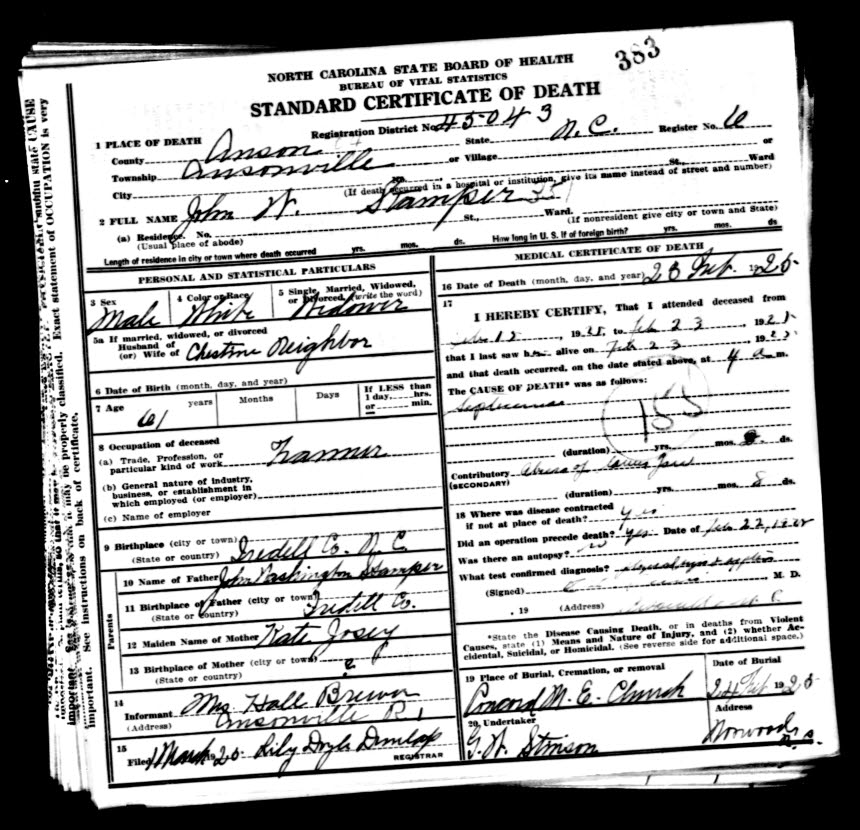 383
NORTH CAROLINA STATE BOARD OF HEALTH
BUREAU OF VITAL STATISTICS
STANDARD CERTIFICATE OF DEATH
1 PLACE OF DEATH Registration District No. 45-043 Register No. 6
County Anson State N.C.
Township Ansonville or Village or
City No. St., Ward
(If death occurred in a hospital or institution, give its name instead of street and number)
2 FULL NAME John W. Stamper
(a) Residence. No. St., Ward.
(Usual place of abode) (If nonresident give city or town and State)
Length of residence in city or town where death occurred yrs. mos. ds. How long in U. S. if of foreign birth? yrs. mos. ds.
PERSONAL AND STATISTICAL PARTICULARS
3 Sex 4 Color or Race 5 Single, Married, Widowed, or Divorced, (write the word)
Male White Widower
5a If married, widowed, or divorced
Husband of
(or) Wife of Chestine Neighbor
6 Date of Birth (month, day, and year)
7 Age 61 years Months Days If LESS than 1 day, hrs. or min.
8 Occupation of deceased
(a) Trade, Profession, or particular kind of work Farmer
(b) General nature of industry, business, or establishment in which employed (or employer)
(c) Name of employer
9 Birthplace (city or town)
(State or country) Iredell Co. N.C.
Parents
10 Name of Father John Washington Stamper
11 Birthplace of Father (city or town)
(State or country) Iredell Co.
12 Maiden Name of Mother Kate Josey
13 Birthplace of Mother (city or town)
(State or country) ?
14
Informant Mrs. Hall Brewer
(Address) Ansonville R 1
15
Filed 1 March 1925 Lily Doyle Dunlap
REGISTRAR
MEDICAL CERTIFICATE OF DEATH
16 Date of Death (month, day, and year) 23 Feb. 1925
17
I HEREBY CERTIFY, That I attended deceased from
, 192 , to Feb 23 , 192
that I last saw h alive on Feb 23 , 192
and that death occurred, on the date stated above, at 4 a m.
The CAUSE OF DEATH* was as follows:
155
(duration) yrs. mos. ds.
Contributory
(SECONDARY)
(duration) yrs. mos. 8 ds.
18 Where was disease contracted
if not at place of death? yes
Did an operation precede death? yes Date of Feb 22, 19
Was there an autopsy? no
What test confirmed diagnosis?
(Signed) M. D.
, 19 (Address)
*State the Disease Causing Death, or in deaths from Violent Causes, state (1) Means and Nature of Injury, and (2) whether Accidental, Suicidal, or Homicidal. (See reverse side for additional space.)
19 Place of Burial, Cremation, or removal Date of Burial
Concord M. E. Church 24 Feb 1925
20 Undertaker Address
G. W. Stinson Norwood, N. C.
Exact statement of OCCUPATION is very
important. See instructions on back of certificate.